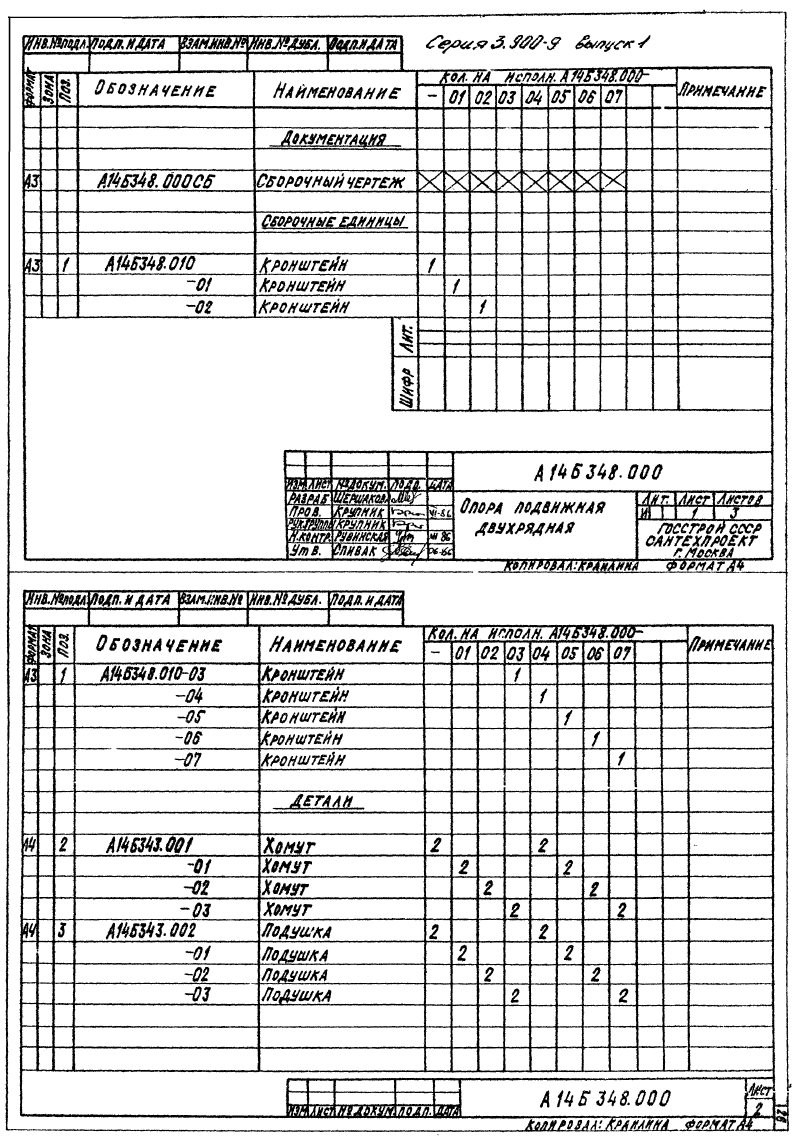 Инв.№подл. Подп. и дата Взам.инв.№ Инв.№дубл. Подп. и дата
Серия 3.900-9 выпуск 1
Формат Зона Поз. Обозначение Наименование Кол. на исполн. А14Б348.000- Примечание
– 01 02 03 04 05 06 07
Документация
А3 А14Б348.000СБ Сборочный чертеж
Сборочные единицы
А3 1 А14Б348.010 Кронштейн 1
-01 Кронштейн 1
-02 Кронштейн 1
Лит.
Шифр
А14Б348.000
Изм. Лист №докум. Подп. Дата
Разраб. Шершакова
Пров. Крупник VI-86
Рук.группы Крупник
Н.контр. Рувинская VII 86
Утв. Спивак 06.86
Опора подвижная
двухрядная
Лит. Лист Листов
И 1 3
Госстрой СССР
Сантехпроект
г. Москва
Копировал: Крайлина Формат А4
Инв.№подл. Подп. и дата Взам.инв.№ Инв.№дубл. Подп. и дата
Формат Зона Поз. Обозначение Наименование Кол. на исполн. А14Б348.000- Примечание
– 01 02 03 04 05 06 07
А3 1 А14Б348.010-03 Кронштейн 1
-04 Кронштейн 1
-05 Кронштейн 1
-06 Кронштейн 1
-07 Кронштейн 1
Детали
А4 2 А14Б343.001 Хомут 2 2
-01 Хомут 2 2
-02 Хомут 2 2
-03 Хомут 2 2
А4 3 А14Б343.002 Подушка 2 2
-01 Подушка 2 2
-02 Подушка 2 2
-03 Подушка 2 2
Изм. Лист № докум. Подп. Дата
А14Б348.000
Лист
2
Копировал: Крайлина Формат А4
26